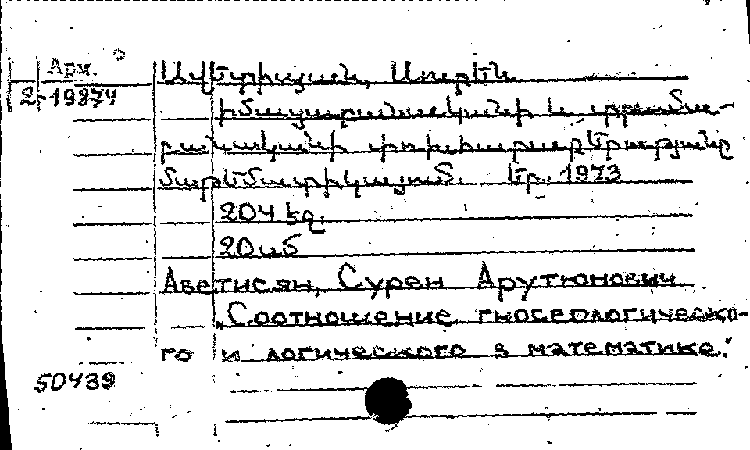 Арм.
2-19874
Ավետիսյան, Սուրեն
իմացաբանականի և տրամա-
բանականի փոխհարաբերությունը
մաթեմատիկայում. Եր. 1973
204 էջ.
20 սմ
Аветисян, Сурен Арутюнович
„Соотношение гносеологическо-
го и логического в математике."
50439